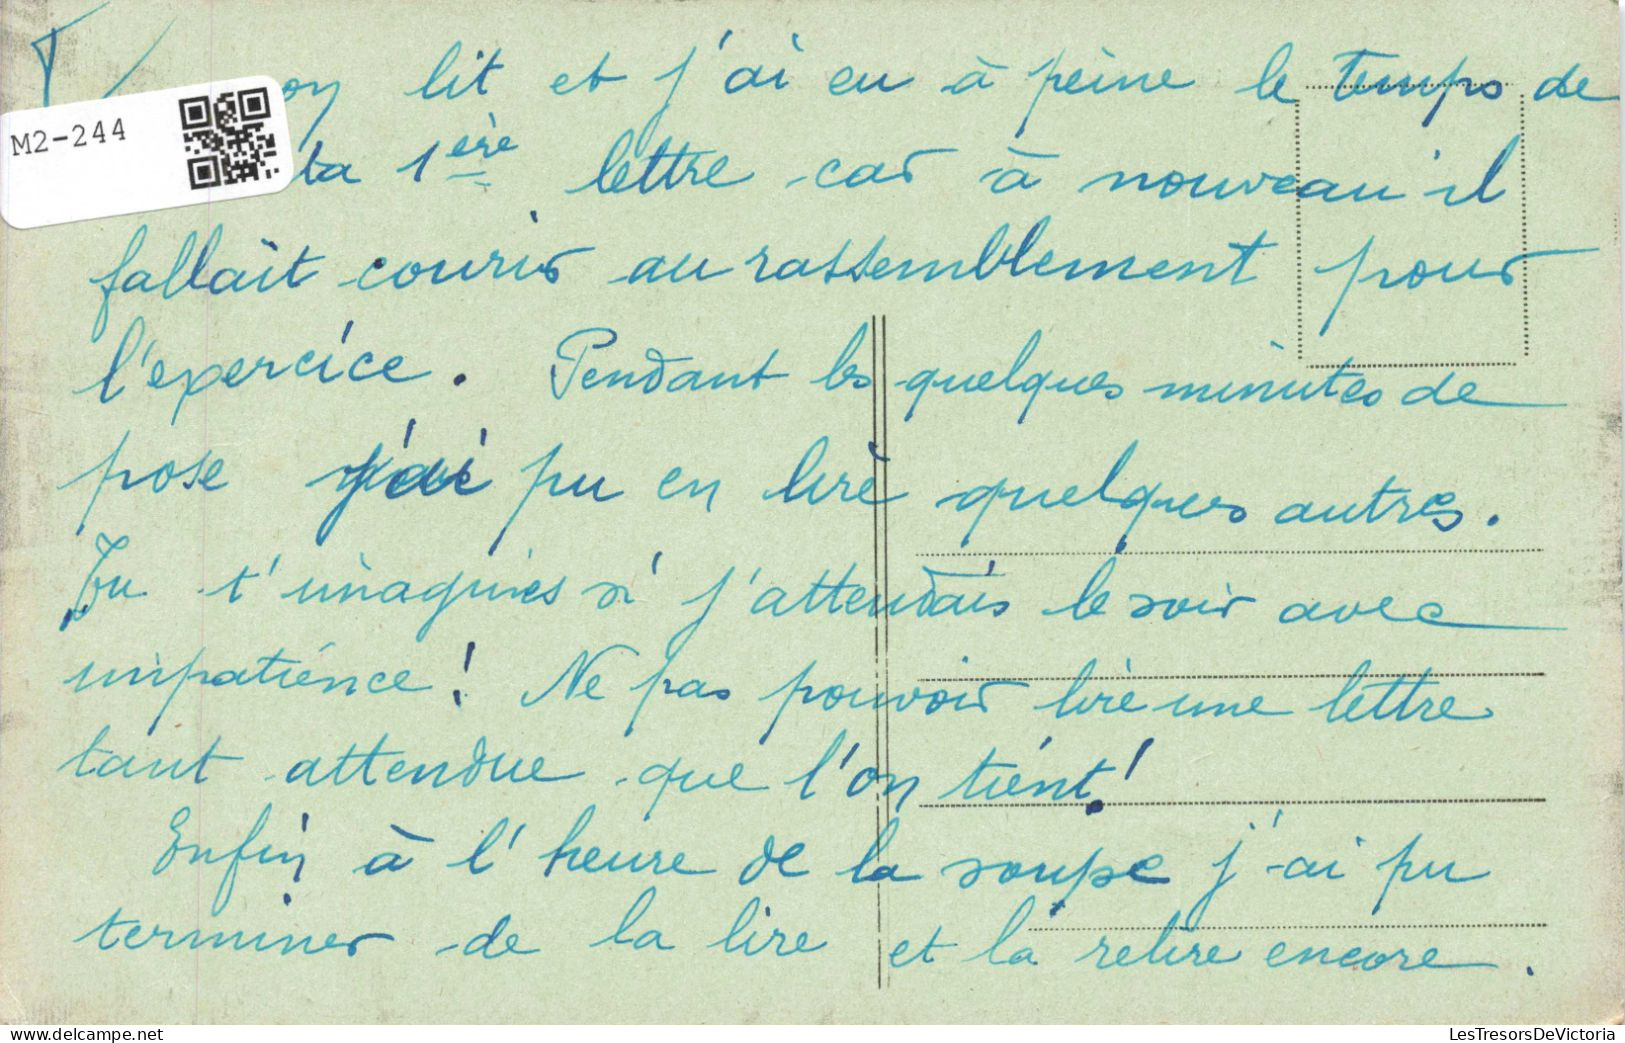 lit et j'ai eu à peine le temps de
M2-244
ta 1ère lettre car à nouveau il
fallait courir au rassemblement pour
l'exercice. Pendant les quelques minutes de
pose j'ai pu en lire quelques autres.
Tu t'imagines si j'attendais le soir avec
impatience! Ne pas pouvoir lire une lettre
tant attendue que l'on tient!
Enfin à l'heure de la soupe j'ai pu
terminer de la lire et la relire encore.
delcampe.net
LesTresorsDeVictoria